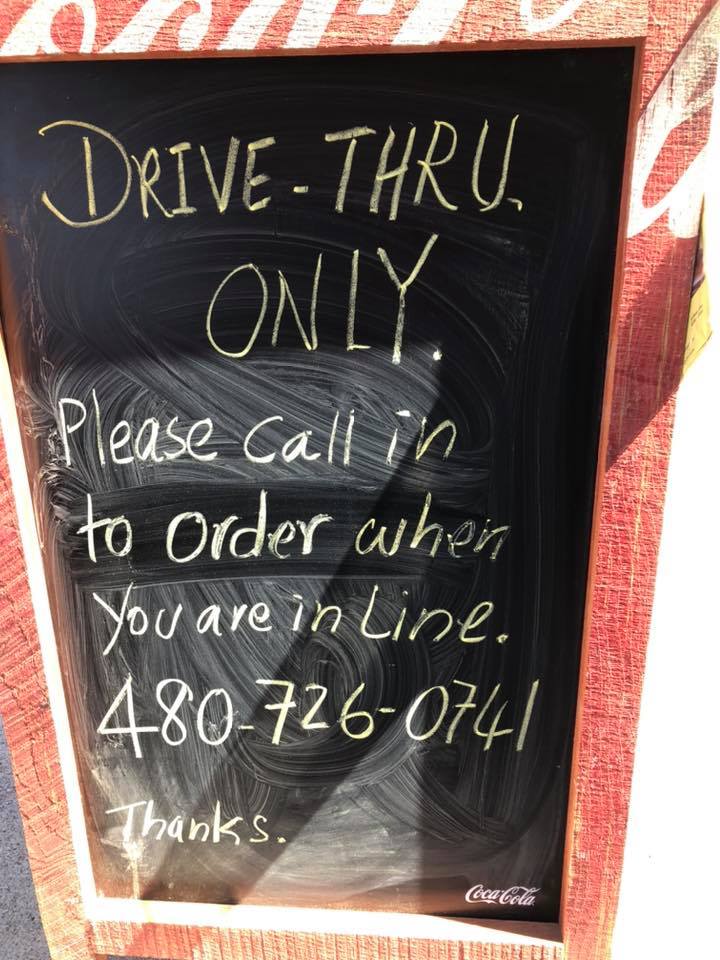 DRIVE-THRU.
ONLY.
Please call in
to order when
You are in Line.
480-726-0741
Thanks.
Coca-Cola